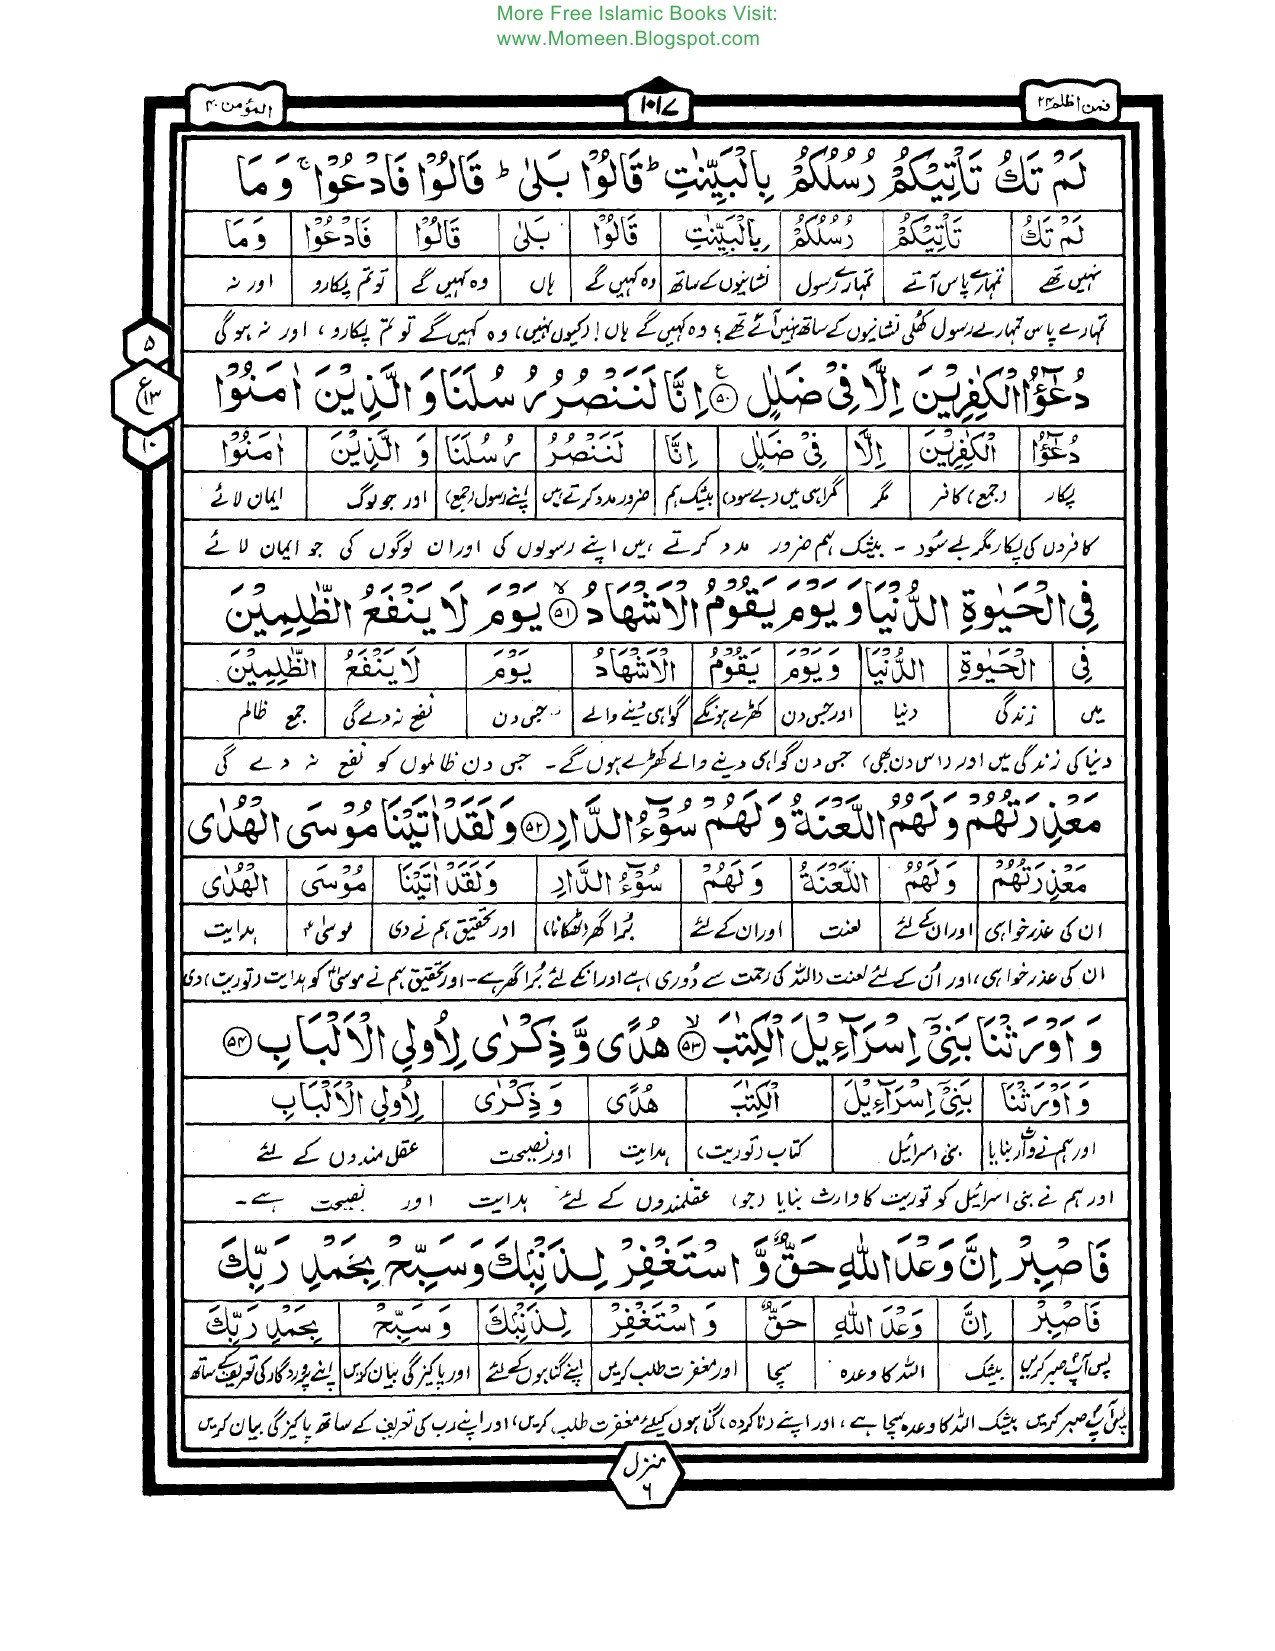 More Free Islamic Books Visit:
www.Momeen.Blogspot.com
فمن اظلم ۲۴ ۱۰۱۷ المؤمن ۴۰
لَمْ تَكُ تَاْتِیْكُمْ رُسُلُكُمْ بِالْبَیِّنٰتِ ؕ قَالُوْا بَلٰی ؕ قَالُوْا فَادْعُوْا ۚ وَ مَا
لَمْ تَكُ تَاْتِیْكُمْ رُسُلُكُمْ بِالْبَیِّنٰتِ قَالُوْا بَلٰی قَالُوْا فَادْعُوْا وَ مَا
نہیں تھے تمہارے پاس آتے تمہارے رسول نشانیوں کے ساتھ وہ کہیں گے ہاں وہ کہیں گے تو تم پکارو اور نہ
تمہارے پاس تمہارے رسول کھلی نشانیوں کے ساتھ نہیں آئے تھے؟ وہ کہیں گے ہاں! (کیوں نہیں) وہ کہیں گے تو تم پکارو، اور نہ ہوگی
۵
ع ۱۳
۱۰
دُعٰٓؤُا الْكٰفِرِیْنَ اِلَّا فِیْ ضَلٰلٍ ۠ ﴿۵۰﴾ اِنَّا لَنَنْصُرُ رُسُلَنَا وَ الَّذِیْنَ اٰمَنُوْا
دُعٰٓؤُا الْكٰفِرِیْنَ اِلَّا فِیْ ضَلٰلٍ اِنَّا لَنَنْصُرُ رُسُلَنَا وَ الَّذِیْنَ اٰمَنُوْا
پکار (جمع) کافر مگر گمراہی میں (بے سود) بیشک ہم ضرور مدد کرتے ہیں اپنے رسول (جمع) اور جو لوگ ایمان لائے
کافروں کی پکار مگر بے سُود ۔ بیشک ہم ضرور مدد کرتے ہیں اپنے رسولوں کی اور ان لوگوں کی جو ایمان لائے
فِی الْحَیٰوةِ الدُّنْیَا وَ یَوْمَ یَقُوْمُ الْاَشْهَادُ ۙ ﴿۵۱﴾ یَوْمَ لَا یَنْفَعُ الظّٰلِمِیْنَ
فِی الْحَیٰوةِ الدُّنْیَا وَ یَوْمَ یَقُوْمُ الْاَشْهَادُ یَوْمَ لَا یَنْفَعُ الظّٰلِمِیْنَ
میں زندگی دنیا اور جس دن کھڑے ہونگے گواہی دینے والے جس دن نفع نہ دے گی جمع ظالم
دنیا کی زندگی میں اور (اس دن بھی) جس دن گواہی دینے والے کھڑے ہوں گے۔ جس دن ظالموں کو نفع نہ دے گی
مَعْذِرَتُهُمْ وَ لَهُمُ اللَّعْنَةُ وَ لَهُمْ سُوْٓءُ الدَّارِ ﴿۵۲﴾ وَ لَقَدْ اٰتَیْنَا مُوْسَی الْهُدٰی
مَعْذِرَتُهُمْ وَ لَهُمُ اللَّعْنَةُ وَ لَهُمْ سُوْٓءُ الدَّارِ وَ لَقَدْ اٰتَیْنَا مُوْسَی الْهُدٰی
ان کی عذر خواہی اور ان کے لئے لعنت اور ان کے لئے بُرا گھر (ٹھکانا) اور تحقیق ہم نے دی موسیٰؑ ہدایت
ان کی عذر خواہی، اور اُن کے لئے لعنت (اللہ کی رحمت سے دُوری) ہے اور انکے لئے بُرا گھر ہے۔ اور تحقیق ہم نے موسیٰؑ کو ہدایت (توریت) دی
وَ اَوْرَثْنَا بَنِیْۤ اِسْرَآءِیْلَ الْكِتٰبَ ۙ ﴿۵۳﴾ هُدًی وَّ ذِكْرٰی لِاُولِی الْاَلْبَابِ ﴿۵۴﴾
وَ اَوْرَثْنَا بَنِیْۤ اِسْرَآءِیْلَ الْكِتٰبَ هُدًی وَ ذِكْرٰی لِاُولِی الْاَلْبَابِ
اور ہم نے وارث بنایا بنی اسرائیل کتاب (توریت) ہدایت اور نصیحت عقل مندوں کے لئے
اور ہم نے بنی اسرائیل کو توریت کا وارث بنایا (جو) عقلمندوں کے لئے ہدایت اور نصیحت ہے۔
فَاصْبِرْ اِنَّ وَعْدَ اللّٰهِ حَقٌّ وَّ اسْتَغْفِرْ لِذَنْۢبِكَ وَ سَبِّحْ بِحَمْدِ رَبِّكَ
فَاصْبِرْ اِنَّ وَعْدَ اللّٰهِ حَقٌّ وَ اسْتَغْفِرْ لِذَنْۢبِكَ وَ سَبِّحْ بِحَمْدِ رَبِّكَ
پس آپؐ صبر کریں بیشک اللہ کا وعدہ سچا اور مغفرت طلب کریں اپنے گناہوں کے لئے اور پاکیزگی بیان کریں اپنے پروردگار کی تعریف کے ساتھ
پس آپؐ صبر کریں بیشک اللہ کا وعدہ سچا ہے، اور اپنے (ناکردہ) گناہوں کیلئے مغفرت طلب کریں، اور اپنے رب کی تعریف کے ساتھ پاکیزگی بیان کریں
منزل ۶